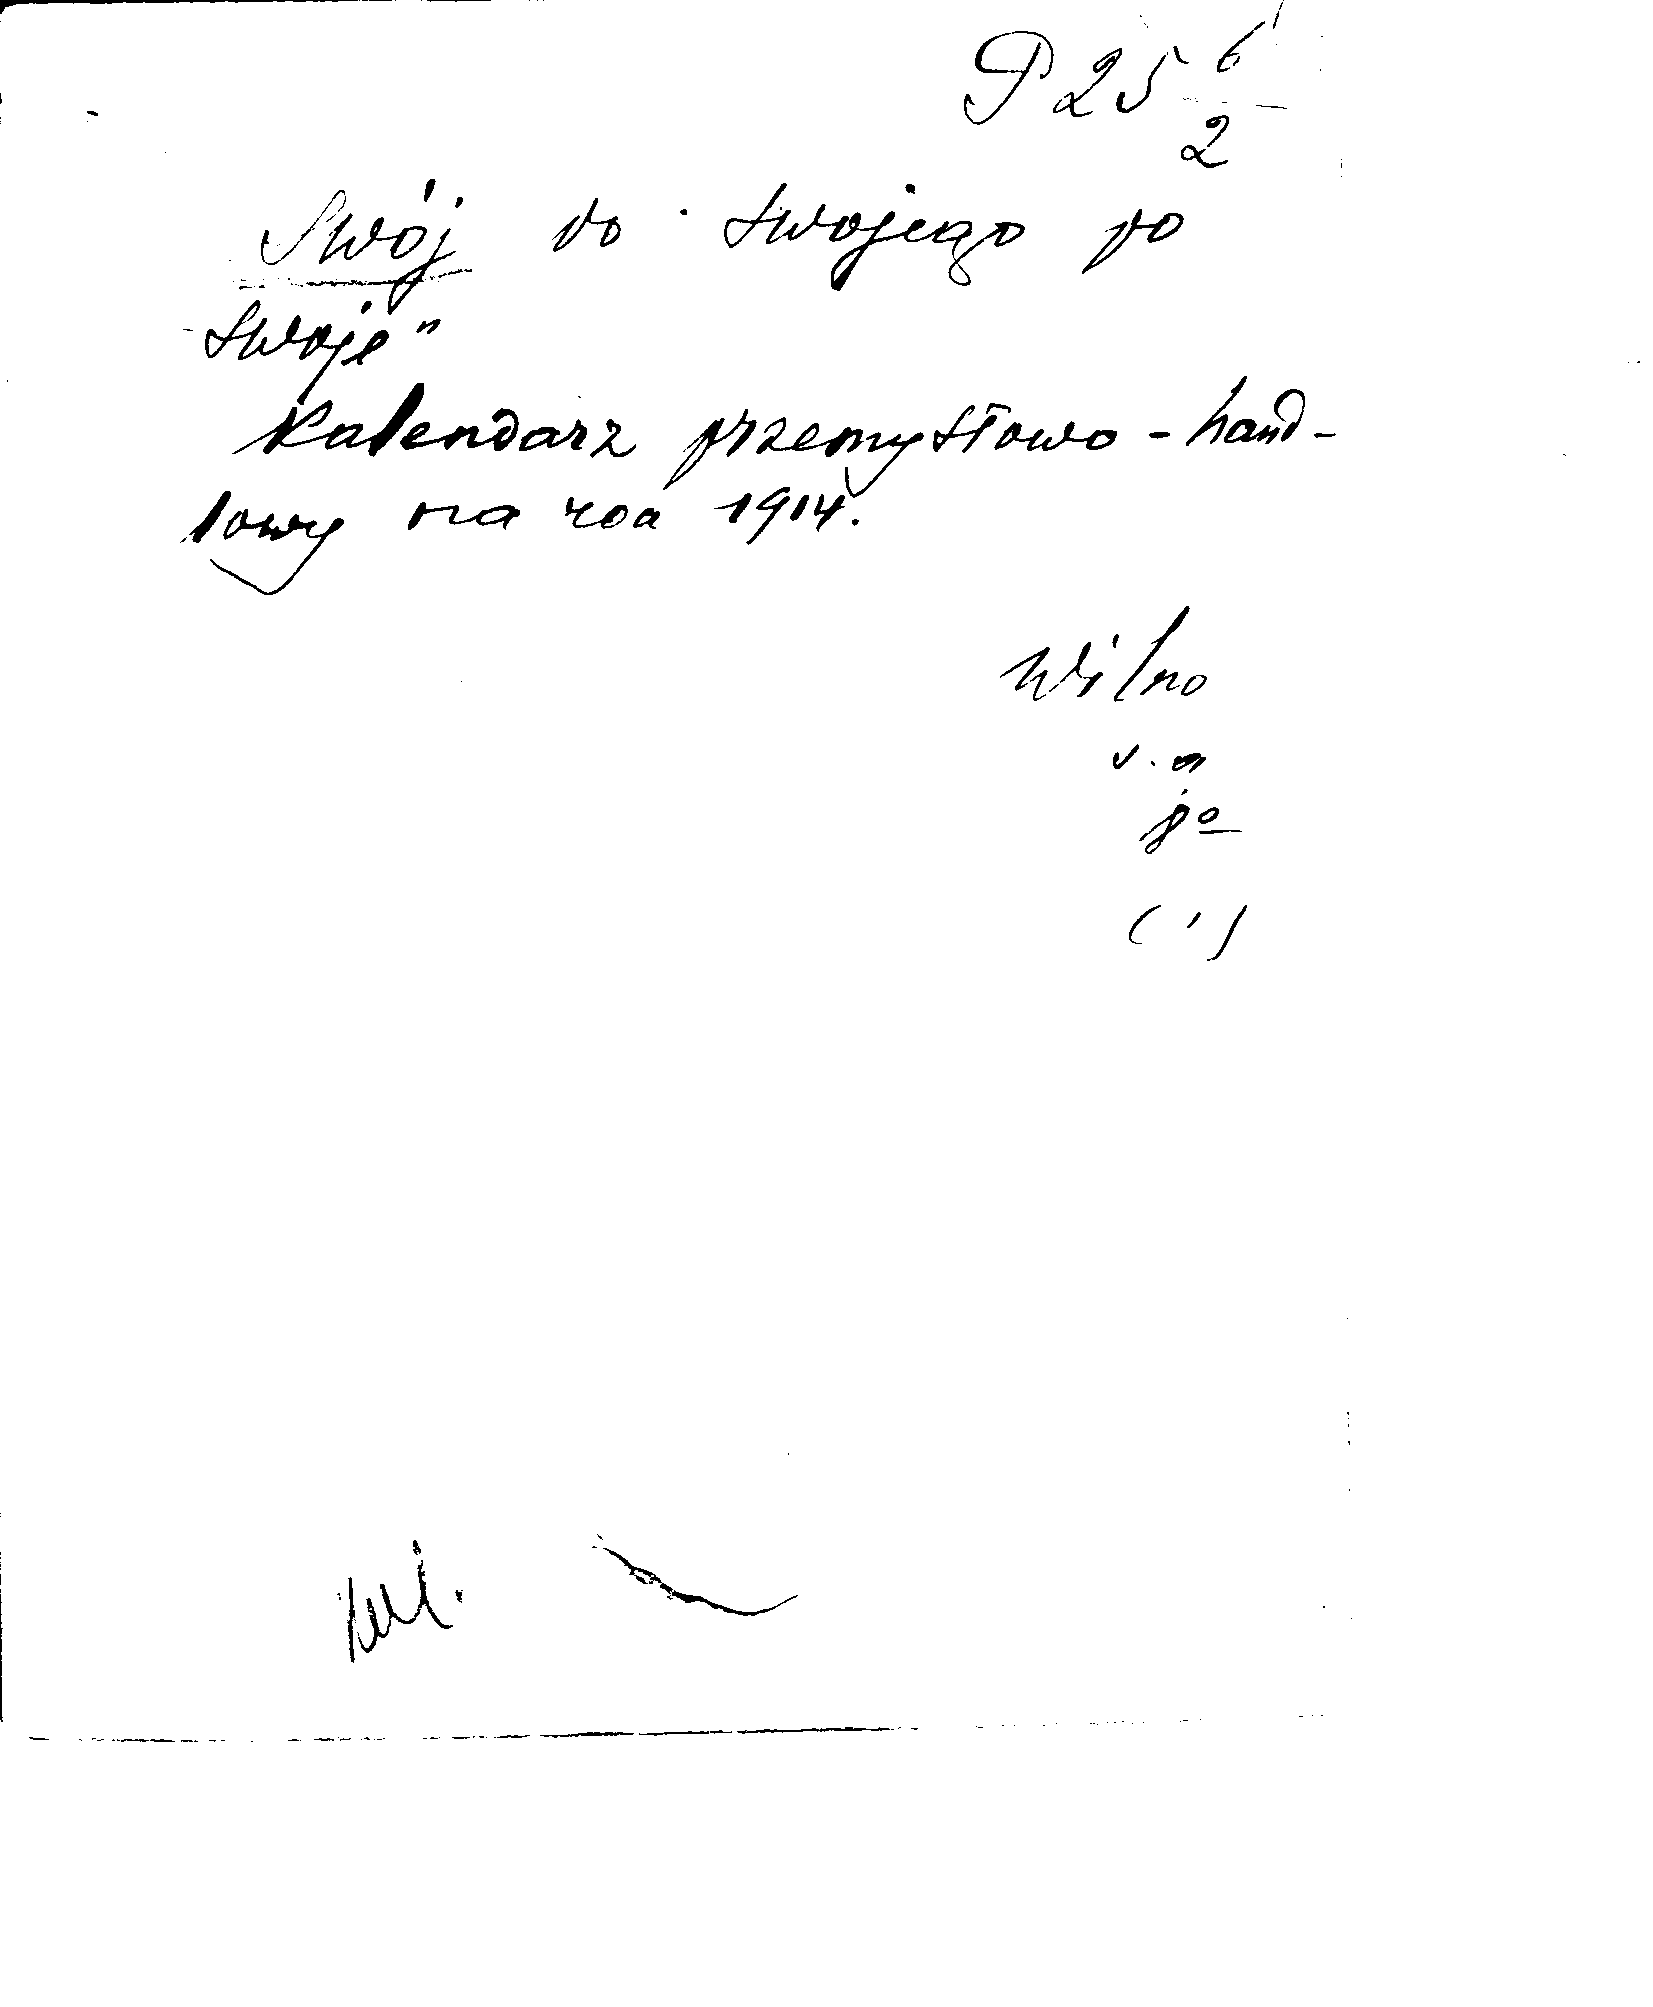 P 25 6/2
Swój do swojego po
swoje"
Kalendarz przemysłowo-hand-
lowy na rok 1914.
Wilno
8º
(1)